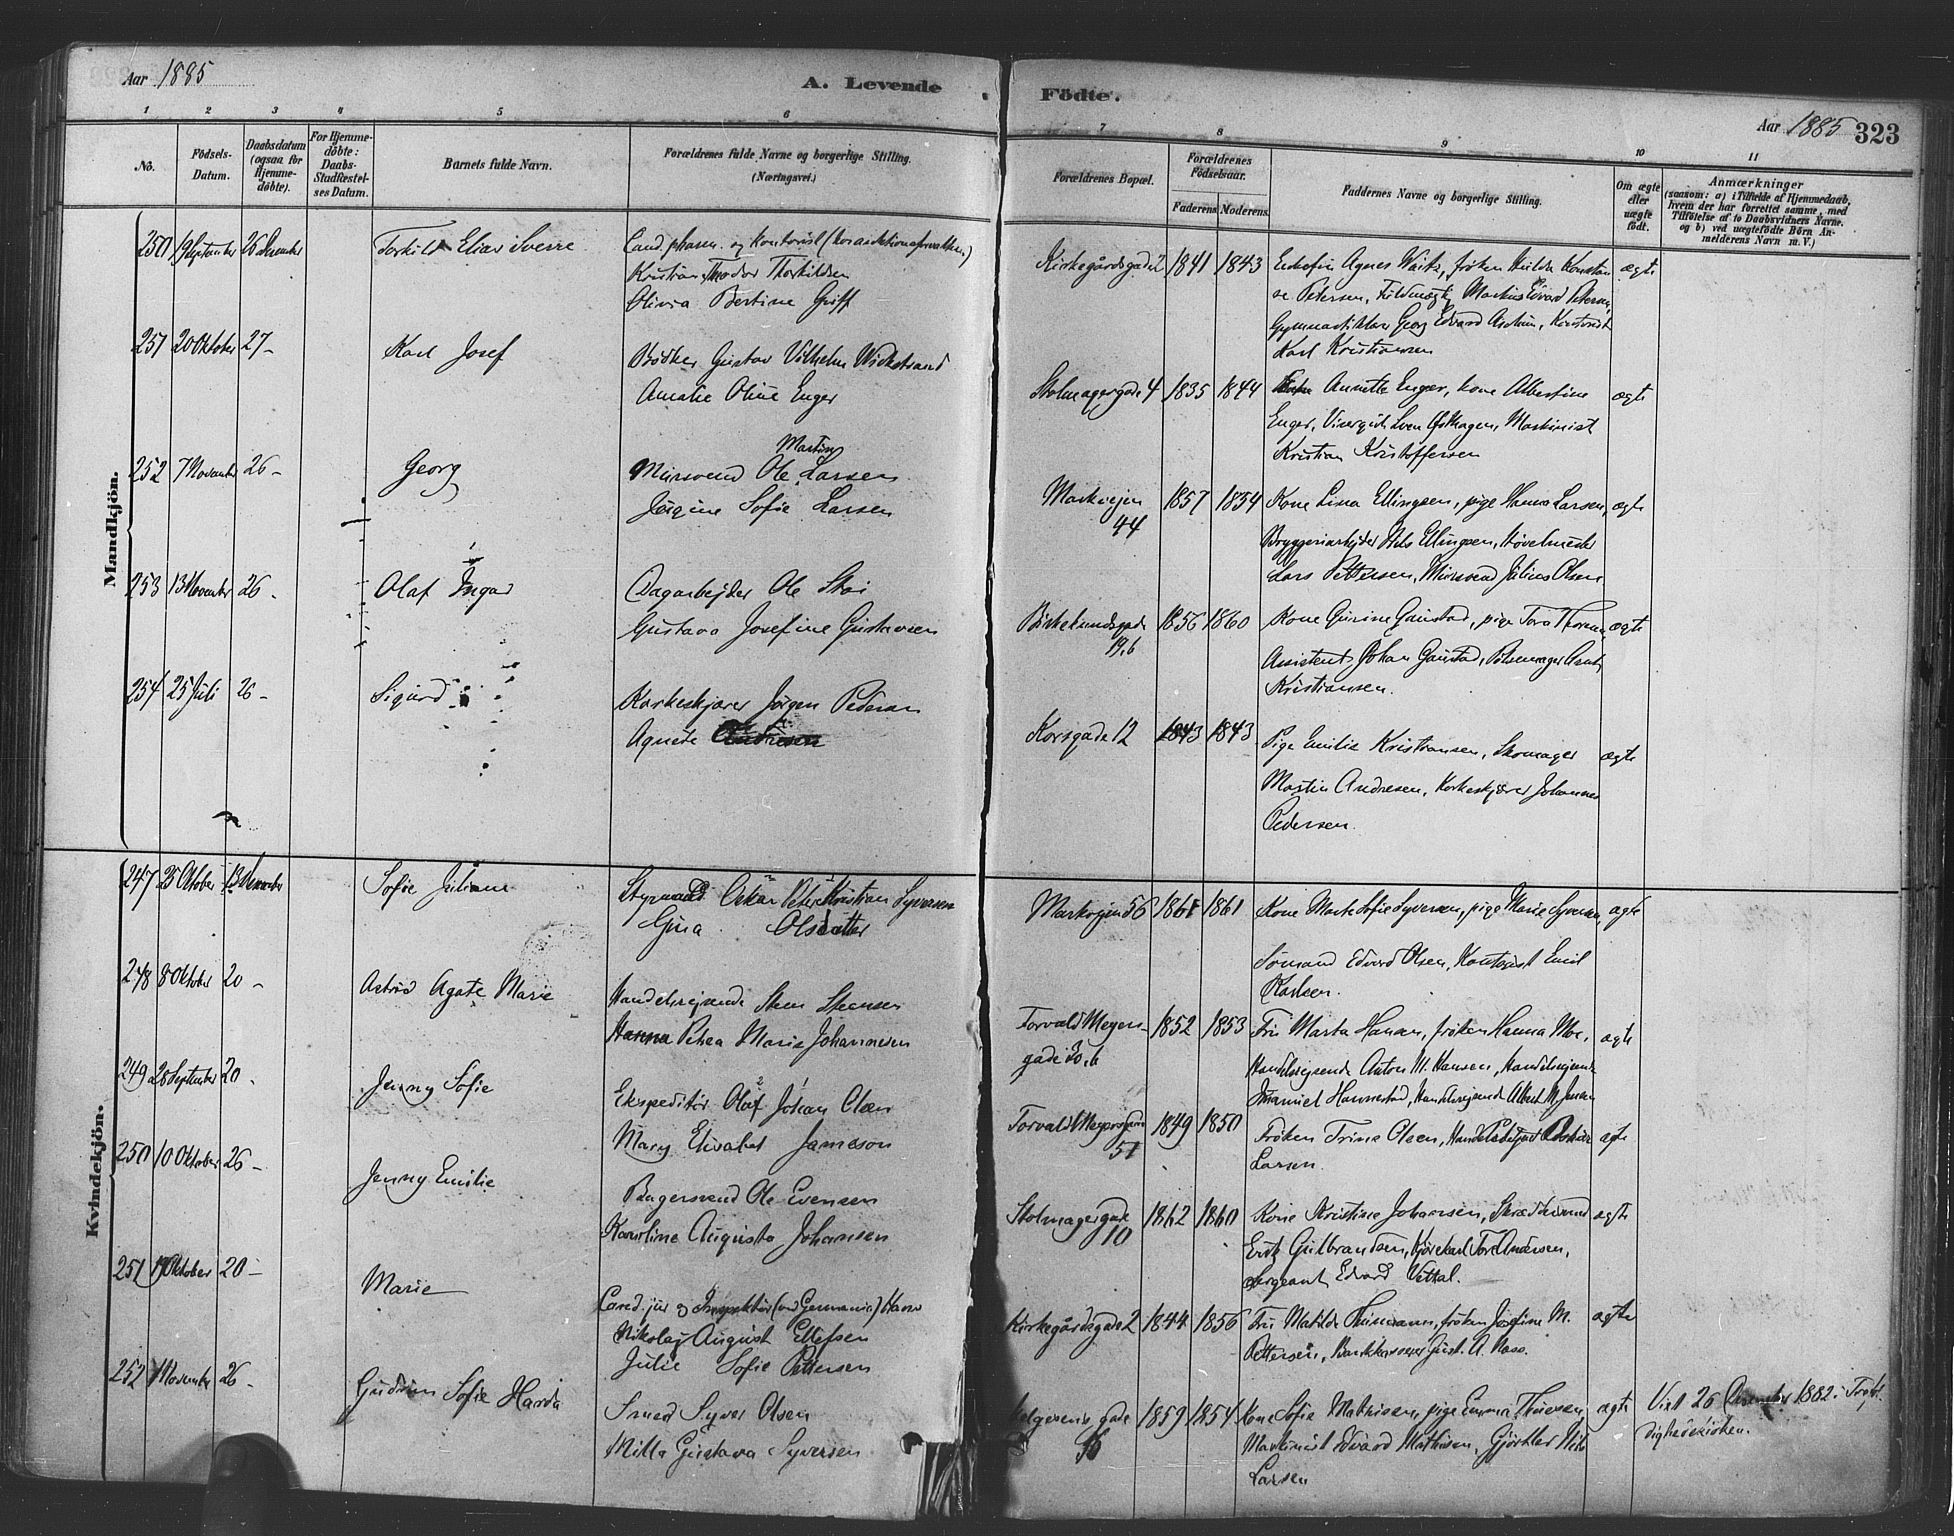 Aar 1885
A. Levende
Födte.
Aar 1885 323
1 2 3 4 5 6 7 8 9 10 11
No.
Födsels-
Datum.
Daabsdatum
(ogsaa for
Hjemme-
döbte).
For Hjemme-
döbte:
Daabs-
Stadfæstel-
ses Datum.
Barnets fulde Navn.
Forældrenes fulde Navne og borgerlige Stilling.
(Næringsvei.)
Forældrenes Bopæl.
Forældrenes
Födselsaar.
Faderens. Moderens.
Faddernes Navne og borgerlige Stilling.
Om ægte
eller
uægte
födt.
Anmærkninger
(saasom: a) i Tilfælde af Hjemmedaab,
hvem der har forrettet samme, med
Tilföielse af to Daabsvidners Navne.
og b) ved uægtefödte Börn An-
melderens Navn m. V.)
Mandkjön.
250 19 September 26 Torkild Elias Sverre
Kristian Theodor Thorkildsen
Olivia Bertine
Kirkegårdsgade 1841 1843
Agnes frøken Hulda
Petersen, Markus Edvard Petersen,
Georg Edvard
Karl Kristiansen
ægte
251 20 Oktober 27 - Karl Josef
Bödker Gustav Vilhelm Wickstrand
Amalie Oline Enger
Stolmagergade 4 1835 1844
Annette Enger, kone Albertine
Enger, Maskinist
Kristian Kristoffersen
ægte
252 7 November 26 - Georg
Martin
Mursvend Ole Larsen
Jörgine Sofie Larsen
Markvejen
44
1857 1854
Kone Lina Ellingsen, pige Hanna Larsen,
Bryggeriarbejder Nils Ellingsen,
Lars Pettersen, Mursvend Julius Olsen
ægte
253 13 November 26 - Olaf Ingar
Dagarbejder Ole
Gustava Josefine Gustavsen
Birkelundsgade
19.b
1856 1860
Kone Gurine Gaustad, pige Tora
Assistent Johan Gaustad, Pölsemager
Kristiansen.
ægte
254 25 Juli 26 - Sigurd
Korkeskjærer Jörgen Pedersen
Agnete Andresen
Korsgade 12 1843 1843
Pige Emilie Kristiansen, Skomager
Martin Andresen, Korkeskjærer Johannes
Pedersen.
ægte
Kvindekjön.
247 25 Oktober 13 Sofie Juliane
Styrmand Oskar Peter Kristian Syversen
Gina Olsdatter
Markvejen 56 1861 1861
Kone Marte Sofie Syversen, pige Marie Syversen,
Sömand Edvard Olsen, Kontorist Emil
Karlsen.
ægte
248 8 Oktober 20 - Astrid Agate Marie
Handelsrejsende Steen Steensen
Hanna Petrea Marie Johannesen
Torvald Meyers
gade 30.b
1852 1853
Fru Marta Hansen, frøken Hanna Moe,
Handelsrejsende Anton M. Hansen, Handelsrejsende
Handelsrejsende Albert M. Jensen
ægte
249 28 September 20 - Jenny Sofie
Ekspeditör Olaf Johan Olsen
Mary Elisabet Jameson
Torvald Meyersgade
51
1849 1850
Fröken Trine Olsen,
Larsen.
ægte
250 10 Oktober 26 - Jenny Emilie
Bagersvend Ole Evensen
Karoline Augusta Johansen
Stolmagergade
10
1862 1860
Kone Kristine Johansen, Skræddersvend
Gulbrandsen, Kjörekarl Tore Andersen,
Sergeant Edvard
ægte
251 Oktober 20 - Marie
Cand. jur og Inspektör (ved Germania)
Nikolaj August Ellefsen
Julie Sofie Pettersen
Kirkegårdsgade 2 1844 1856
Fru Matilde frøken Josefine M.
Pettersen, Bankkasserer Just. A. Nass.
ægte
252 1 November 26 - Gudrun Sofie
Smed Syver Olsen
Milla Gustava Syversen
gade
1859 1854
Kone Sofie Mathisen, pige Emma
Maskinist Edvard Mathisen, Gjörtler Nils
Larsen
ægte
Viet 26 December 1882 i Trefol
dighedskirken.